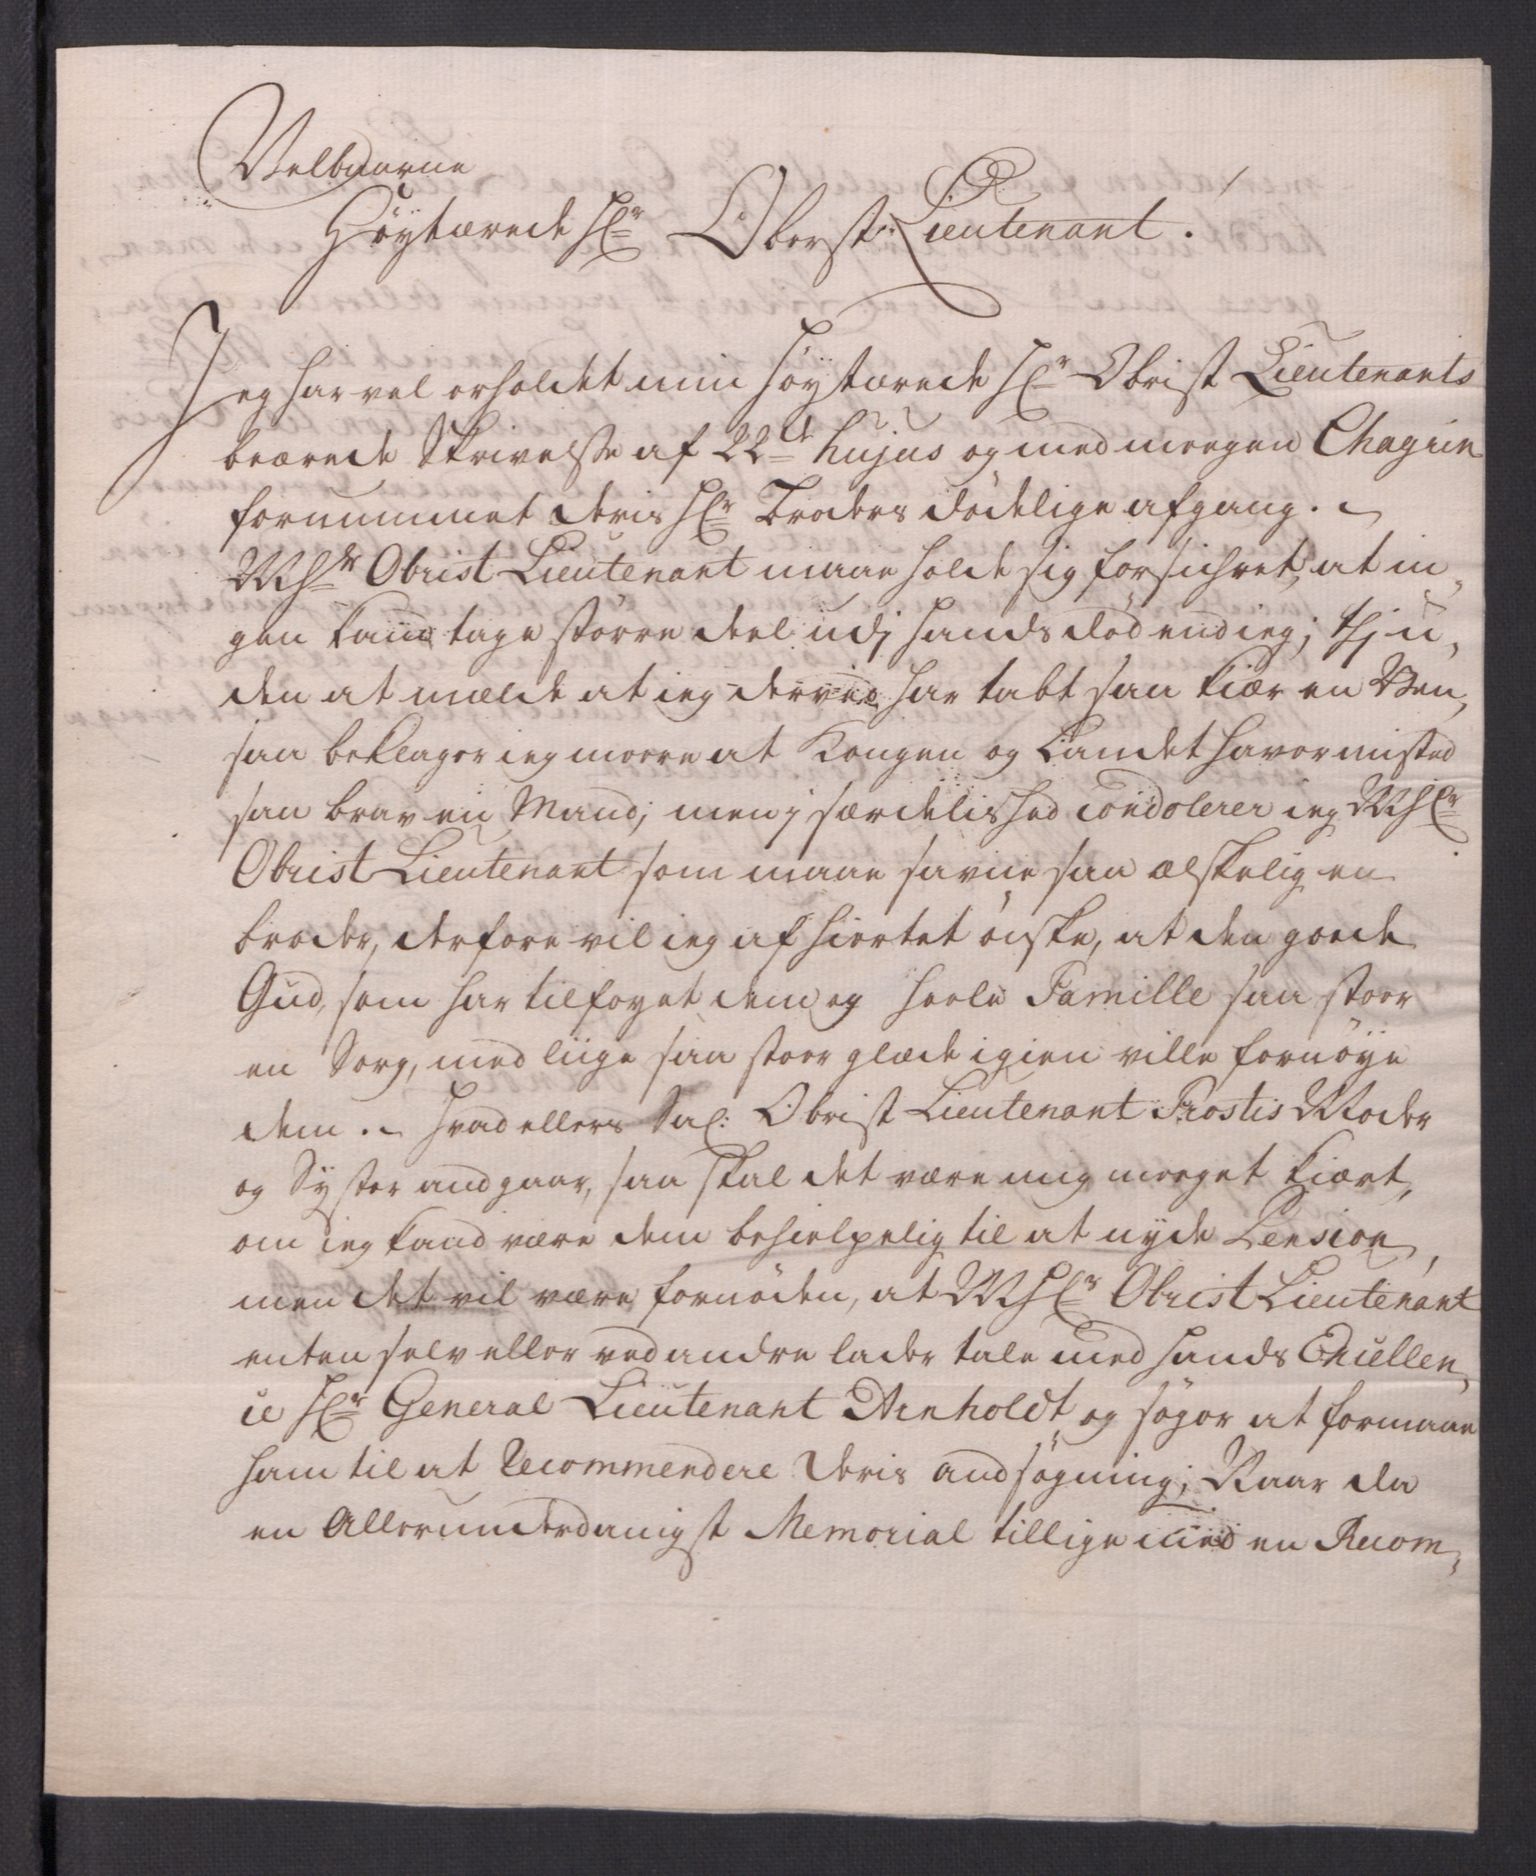 Velbaarne
Höytærede Hr Oberst: Lieutenant.
Jeg har vel erholdet min Höytærede Hr Obrist Lieutenants
beærede Skrivelsse af 22de hujus og med meegen Chagrin
fornummet deris Hr Broders dödelige afgang.
MHr Obrist Lieutenant maae holde sig forsichret, at in-
gen kand tage större deel udj hands död end ieg; thj u-
den at mælde at ieg derved har tabt saa kiær en Ven,
saa beklager ieg meere at Kongen og Landet haver misted
saa brav en Mand; men j særdelished Condolerer ieg MHr
Obrist Lieutenant som maae savne saa ælskelig en
broder, derfore vil ieg af hiertet önske, at den goede
Gud, som har tilföyet dem og heele Familie saa stoor
en Sorg, med liige saa stoor glæde igien ville fornöye
dem. Hvad ellers Sal: Obrist Lieutenant Frostis Moder
og Syster andgaar, saa skal det være mig meeget kiært,
om ieg kand være dem behielpelig til at nyde Pension,
men det vil være fornöden, at MHr Obrist Lieutenant
enten selv eller ved andre lader tale med hands Excellen-
ce Hr General Lieutenant Arnholdt og söger at formaae
ham til at Recommendere deris andsögning; Naar da
en Allerunderdanigst Memorial tillige med en Recom-